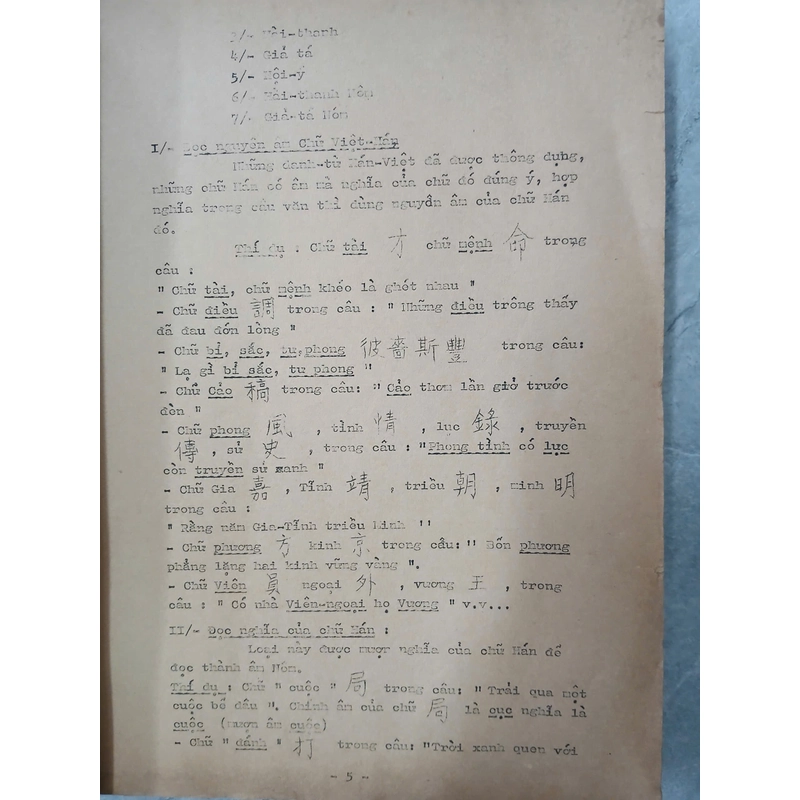 3/- Hài-thanh
4/- Giả tá
5/- Hội-ý
6/- Hài-thanh Nôm
7/- Giả-tá Nôm
I/- Đọc nguyên âm Chữ Việt-Hán
Những danh-từ Hán-Việt đã được thông dụng,
những chữ Hán có âm mà nghĩa của chữ đó đúng ý, hợp
nghĩa trong câu văn thì dùng nguyên âm của chữ Hán
đó.
Thí dụ : Chữ tài 才 chữ mệnh 命 trong
câu :
" Chữ tài, chữ mệnh khéo là ghét nhau "
- Chữ điều 調 trong câu : " Những điều trông thấy
đã đau đớn lòng "
- Chữ bỉ, sắc, tư, phong 彼嗇斯豐 trong câu:
" Lạ gì bỉ sắc, tư phong "
- Chữ Cảo 稿 trong câu: " Cảo thơm lần giở trước
đèn "
- Chữ phong 風 , tình 情 , luc 錄 , truyền
傳 , sử 史 , trong câu : "Phong tình có lục
còn truyền sử xanh "
- Chữ Gia 嘉 , Tĩnh 靖 , triều 朝 , minh 明
trong câu :
" Rằng năm Gia-Tĩnh triều Minh ''
- Chữ phương 方 kinh 京 trong câu:'' Bốn phương
phẳng lặng hai kinh vững vàng ".
- Chữ Viên 員 ngoại 外 , vương 王 , trong
câu : " Có nhà Viên-ngoại họ Vương " v.v...
II/- Đọc nghĩa của chữ Hán :
Loại này được mượn nghĩa của chữ Hán để
đọc thành âm Nôm.
Thí dụ : Chữ " cuộc " 局 trong câu: " Trải qua một
cuộc bể dâu ". Chính âm của chữ 局 là cục nghĩa là
cuộc (mượn âm cuộc)
- Chữ " đánh " 打 trong câu: "Trời xanh quen với
- 5 -